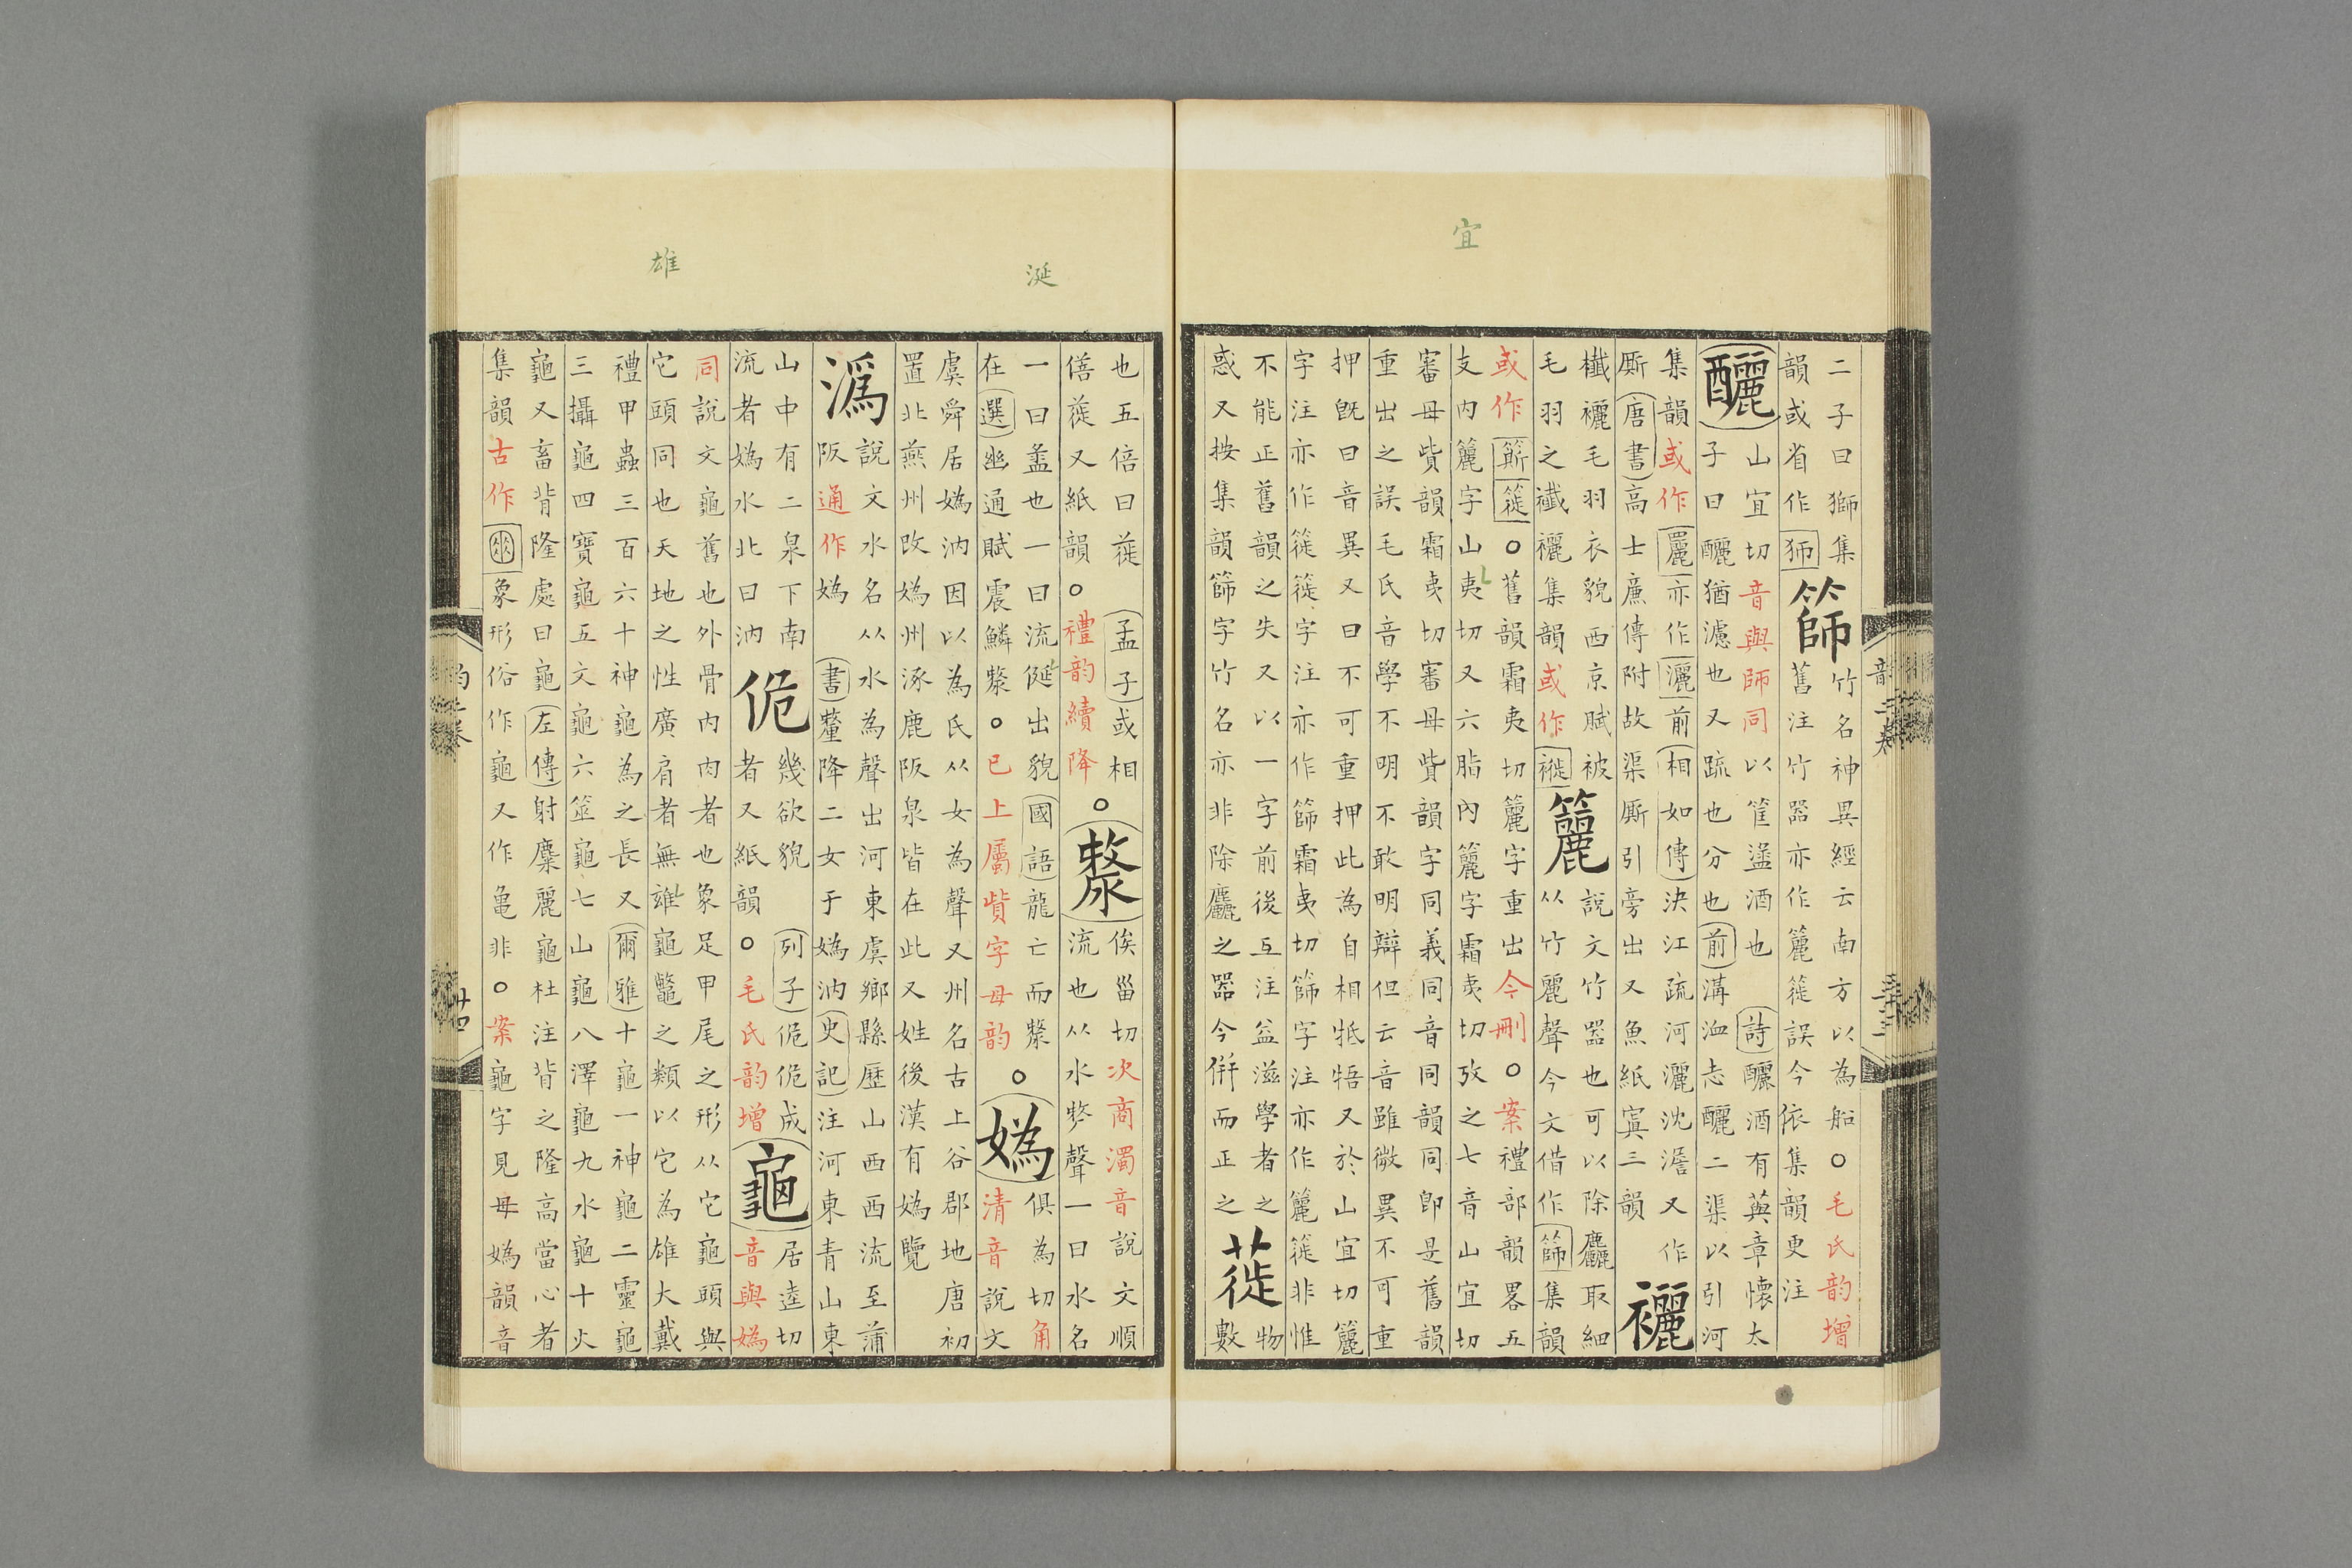 二子曰獅集
韻或省作狮
篩
竹名神異經云南方以為船○毛氏韵增
舊注竹器亦作簏簁誤今依集韻更注
釃
山宜切音與師同以筐盪酒也詩釃酒有藇章懷太
子曰釃猶濾也又疏也分也前溝洫志釃二渠以引河
集韻或作䍦亦作灑前相如傳決江疏河灑沈澹又作
厮唐書高士廉傳附故渠厮引旁出又魚紙寘三韻
襹
襳襹毛羽衣貌西京賦被
毛羽之襳襹集韻或作褷
籭
說文竹器也可以除麤取細
从竹麗聲今文借作篩集韻
或作簛簁○舊韻霜夷切籭字重出今刪○案禮部韻畧五
支内籭字山夷切又六脂内籭字霜夷切攷之七音山宜切
審母貲韻霜夷切審母貲韻字同義同音同韻同卽是舊韻
重出之誤毛氏音學不明不敢明辯但云音雖微異不可重
押旣曰音異又曰不可重押此為自相牴牾又於山宜切籭
字注亦作簁簁字注亦作篩霜夷切篩字注亦作籭簁非惟
不能正舊韻之失又以一字前後互注益滋學者之
惑又按集韻篩字竹名亦非除麤之器今併而正之
蓰
物
數
韵上卷
宜
也五倍曰蓰孟子或相
僐蓰又紙韻○禮韵續降
○漦
俟甾切次商濁音說文順
流也从水𠩺聲一曰水名
一曰盝也一曰流㑌出貌國語龍亡而漦
在選幽通賦震鱗漦○已上屬貲字母韵
○媯
俱為切角
清音說文
虞舜居媯汭因以為氏从女為聲又州名古上谷郡地唐初
置北燕州改媯州涿鹿阪泉皆在此又姓後漢有媯覽
溈
說文水名从水為聲出河東虞鄉縣歷山西西流至蒲
阪通作媯書釐降二女于媯汭史記注河東青山東
山中有二泉下南
流者媯水北曰汭
佹
幾欲貌列子佹佹成
者又紙韻○毛氏韵增
龜
居逵切
音與媯
同說文龜舊也外骨内肉者也象足甲尾之形从它龜頭與
它頭同也天地之性廣肩者無雄龜鼈之類以它為雄大戴
禮甲蟲三百六十神龜為之長又爾雅十龜一神龜二靈龜
三攝龜四寶龜五文龜六筮龜七山龜八澤龜九水龜十火
龜又畜背隆處曰龜左傳射麋麗龜杜注背之隆高當心者
集韻古作象形俗作龜又作亀非○案龜字見母媯韻音
涎
雄
廿四